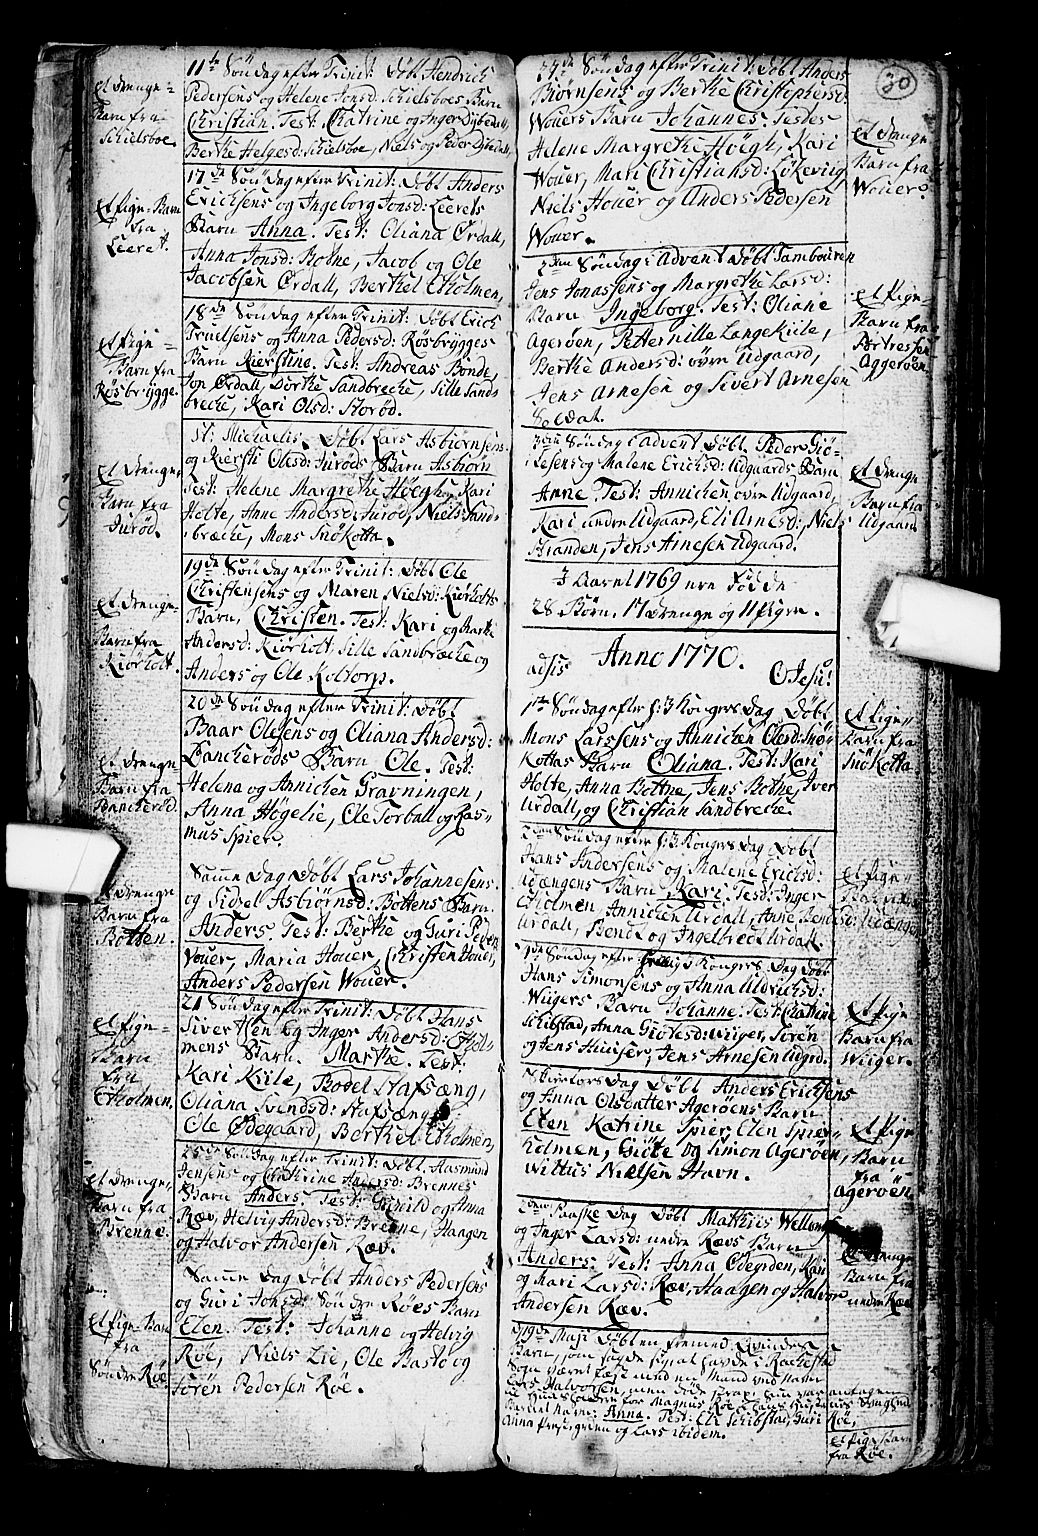 11te Søndag efter Trinit: Døbt Hendrich
Pedersens og Helene Jonsd: Schielsboes Barn
Christian. Test: Catrine og Inger Dybedal,
Berthe Helgesd: Schielsboe, Niels og Peder Dybedal,
et Drenge-
Barn fra
Schielsboe.
17de Søndag efter Trinit: Døbt Anders
Erichsens og Ingeborg Jonsd: Leerets
Barn Anna. Test: Oliana Ørdall,
Anna Jonsd: Botne, Jacob og Ole
Jacobsen Ørdall, Berthel Etholmen,
et Pige-Barn
fra
Leeret.
18de Søndag efter Trinit: Døbt Erich
Truelsens og Anna Pedersd: Røsbrygges
Barn Kierstine. Test: Andreas Bonde,
Jon Ørdall, Dorthe Sandbreche, Sille Sand-
breche, Kari Olsd: Storød.
et Pige-
Barn fra
Røsbrygge.
St: Michaelis Døbt Lars Asbiørnsens
og Kiersti Olesd: Surøds Barn Asbiørn
Test: Helene Margrethe Høegh, Kari
Holte, Anne Andersd: Surød, Niels Sand-
breche, Mons Snøkotta.
et Drenge-
Barn fra
Surød.
19de Søndag efter Trinit: Døbt Ole
Christensens og Maren Nielsd: Kiørholts
Barn, Christen. Test: Kari og Marthe
Andersd: Kiørholt, Sille Sandbreche og
Anders og Ole Koltorp.
et Drenge-
Barn fra
Kiørholt.
20de Søndag efter Trinit: Døbt
Baar Olesens og Oliana Andersd:
Bancherøds Barn Ole. Test:
Helena og Annichen Gravningen,
Anna Høgelie, Ole Torball og Ras-
mus Spier.
et Drenge
Barn fra
Bancherød.
Samme Dag Døbt Lars Johannesens
og Sidsel Asbiørnsd: Bottens Barn
Anders. Test: Berthe og Guri Peders
Vouer, Maria Houer, Christen Vouer,
Anders Pedersen Wouer.
et Drenge
Barn fra
Botten.
21 Søndag efter Trinit: Døbt Hans
Sivertsen og Inger Andersd: Ethol-
mens Barn. Marthe. Test:
Kari Kiile, Bodel Hafsæng,
Oliana Svendsd: Hafsæng,
Ole Ødegaard, Berthel Etholmen,
et Pige-
Barn
fra
Etholmen.
25de Søndag efter Trinit: Døbt Aasmund
Jensens og Cathrine Andersd: Brennes
Barn Anders Test: Gunild og Anna
Ræv, Helvig Andersd: Brenne, Haagen
og Halvor Andersen Ræv.
et Drenge-
Barn fra
Brenne.
Samme Dag Døbt Anders Pedersens
og Guri Jonsd: Søndre Røes Barn
Elen. Test: Johanne og Helvig
Røe, Niels Lie, Ole Basto og
Søren Pedersen Røe.
et Pige-Barn
fra
Søndre Røe
30
27de Søndag efter Trinit: Døbt Anders
Biørnsens og Berthe Christophersd:
Wouers Barn Johannes. Testes
Helene Margrethe Høegh, Kari
Wouer, Mari Christiansd: Løkevig,
Niels Houer og Anders Pedersen
Wouer.
et Drenge
Barn fra
Wouer.
2den Søndag i Advent Døbt Tambouren
Jens Jonassens og Margrethe Larsd:
Barn Ingeborg. Test: Oliane
Agerøen, Petternille Langekiile,
Berthe Andersd: øvre Udgaard,
Jens Arnesen og Sivert Arnesen
Soldat.
et Pige-
Barn fra
Fortressen
Aggerøen
3die Søndag i Advent Døbt Peder Giø-
tesens og Malene Erichsd: Udgaards Barn
Anne. Test: Annichen øvre Udgaard,
Kari nedre Udgaard, Eli Arnesd:, Niels
Stranden, Jens Arnesen Udgaard.
et Drenge
Barn fra
Udgaard
I Aaret 1769 ere Fødde
28 Børn, 17 Drenge og 11 Piger.
Anno 1770.
adsis O Jesu!
1ste Søndag efter h: 3 Kongers Dag Døbt
Mons Larssens og Annichen Olesd: Snø-
Kottas Barn Oliana. Test: Kari
Holte, Anna Bothne, Jens Bothne, Iver
Urdall, og Christian Sandbreche.
et Pige-
Barn fra
Snøkotta
2den Søndag efter h: 3 Kongers Dag Døbt
Hans Andersens og Malene Erichsd:
Udængens Barn Kari. Test: Inger
Etholmen, Annichen Urdall, Anne Bendtsd:
Urdall, Bendt og Ingelbredt Urdall.
et Pige-
Barn fra
Udængen
4de Søndag efter Hellig 3 Kongers Dag Døbt
Hans Simonsens og Anna Aldrichsd:
Wiigers Barn Johanne. Test: Cathrine
Schibstad, Anna Giøtesd: Wiiger, Søren
og Jens Huuser, Jens Arnesen Udgrd.
Et Pige
Barn fra
Wiiger.
Skiertors Dag Døbt Anders Erichsens
og Anna Olsdatter Agerøens Barn
Elen Katrine Spier, Elen Spier-
holmen, Giøte og Simon Agerøen,
Wittus Nielsen Havn.
et Pige
Barn
fra
Agerøen
2den Paaske Dag Døbt Mathiis Wellom
og Inger Larsd: nedre Rævs Barn
Anders. Test: Anna Ødegrden, Kari
og Mari Larsd: Ræv, Haagen og Halvor
Andersen Ræv.
et Drenge
Barn fra
nedre Ræv
19de Maji Døbt en fremmed Qvindes
Barn, som sagde sig at have i Rachestad
Sogn været fæst med en Mand ved Navn
Lars Halvorsen, men døde
Barnet Navn: Anna. Test: Ele Schibstad, Guri Røe,
Anna og Lars ibidem.
et Pige Barn
fra Røe.